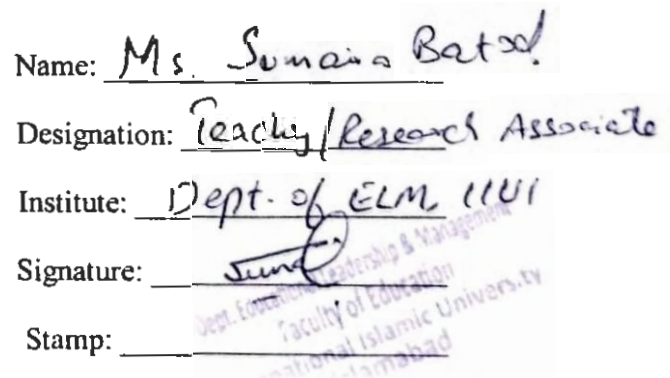 Name: Ms. Sumaira Batool
Designation: Teaching/Research Associate
Institute: Dept. of ELM, IIUI
Signature:
Dept. Educational Leadership & Management
Faculty of Education
national Islamic University
Islamabad
Stamp: